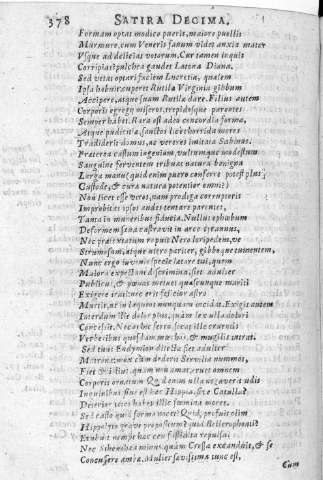 378 SATIRA DECIMA.
Formam optat modico pueris, maiore puellis
Murmure, cum Veneris fanum videt anxia mater
Vsque ad delicias votorum. Cur tamen inquit
Corripias? pulchra gaudet Latona Diana.
Sed vetat optari faciem Lucretia, qualem
Ipsa habuit. cuperet Rutilæ Virginia gibbum
Accipere, atque suam Rutilæ dare. Filius autem
Corporis egregij miseros, trepidosque parentes
Semper habet. Rara est adeo concordia formæ,
Atque pudicitiæ. sanctos licet horrida mores
Tradiderit domus, ac veteres imitata Sabinas.
Præterea castum ingenium vultumque modestum
Sanguine ferventem tribuat natura benigna
Larga manu (quid enim puero conferre potest plus
Custode, & cura natura potentior omni?)
Non licet esse viros. nam prodiga corruptoris
Improbitas ipsos audet tentare parentes.
Tanta in muneribus fiducia. Nullus ephœbum
Deformem sæva castravit in arce tyrannus,
Nec prætextatum rapuit Nero loripedem, ve
Strumosum, atque utero pariter, gibboque tumentem.
Nunc ergo iuvenis specie lætare tui, quem
Maiora expectant discrimina. fiet adulter
Publicus, & pœnas metuet quascunque mariti
Exigere irati. nec erit felicior astro
Martis, ut in laqueos nunquam incidat. Exigit autem
Interdum ille dolor plus, quàm lex ulla dolori
Concessit. Necat hic ferro, secat ille cruentis
Verberibus, quosdam mœchos, & mugilis intrat.
Sed tuus Endymion dilectæ fiet adulter
Matronæ. mox cùm dederit Servilia nummos,
Fiet & illius. quam non amat. exuet omnem
Corporis ornatum Quid enim ulla negaverit udis
Inguinibus, sive est hæc Hippia, sive Catulla?
Deterior totos habet illic fœmina mores.
Sed casto quid forma nocet? Quid, profuit olim
Hippolyto grave propositum? quid Bellerophonti?
Erubuit nempe hæc ceu fastidita repulsa:
Nec Sthenobœa minus, quàm Cressa excanduit, & se
Concussere ambæ. Mulier sævissima tunc est,
Cum